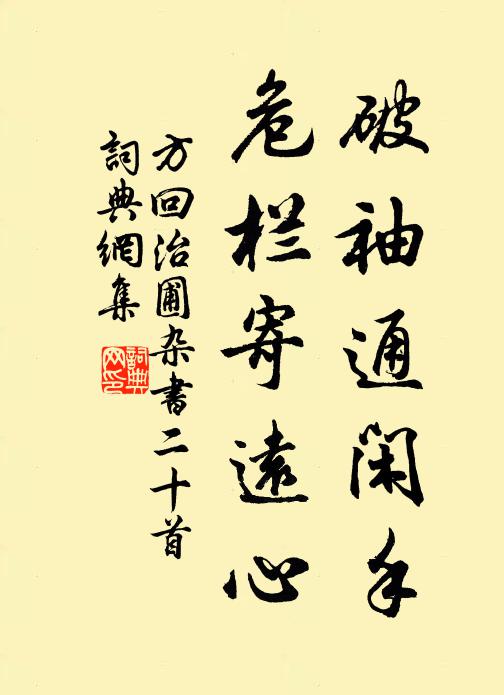 破袖通闲手
危栏寄遠心
方回治圃杂書二十首
詞典網集
詞典网印